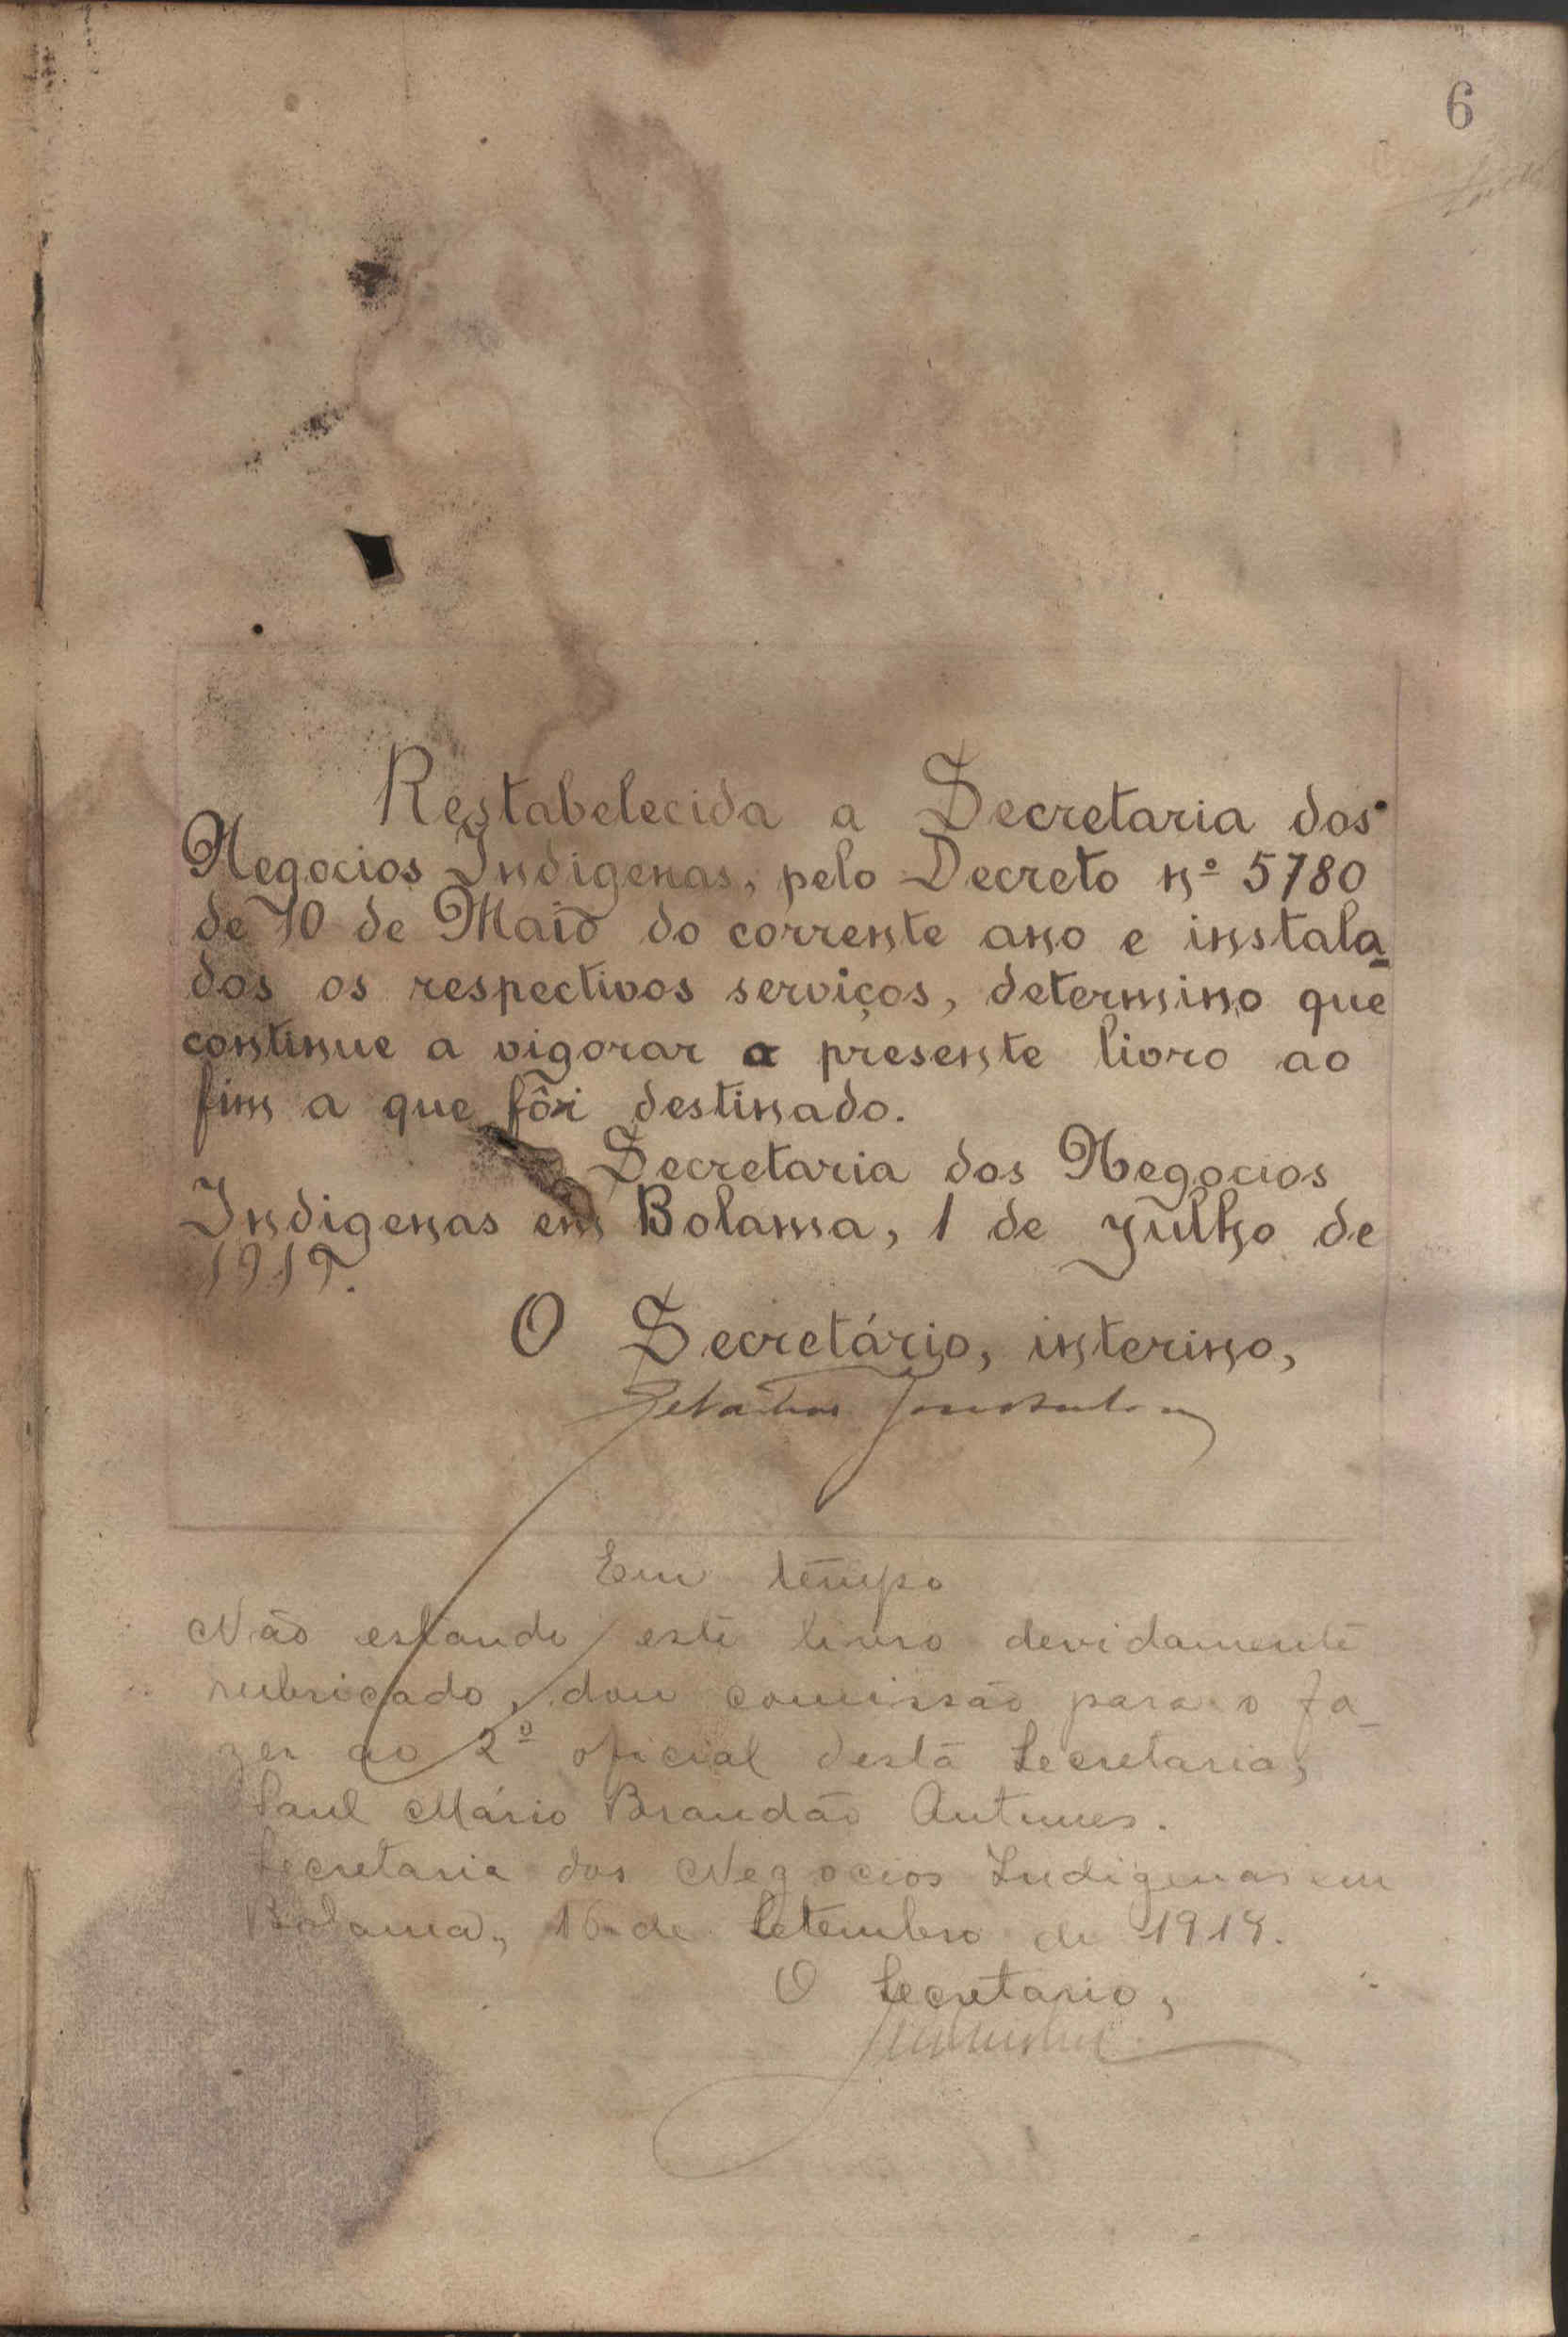 6
Restabelecida a Secretaria dos
Negocios Indigenas, pelo Decreto nº 5780
de 10 de Maio do corrente ano e instala-
dos os respectivos serviços, determino que
continue a vigorar o presente livro ao
fim a que fôr destinado.
Secretaria dos Negocios
Indigenas em Bolama, 1 de Julho de
1919.
O Secretário, interino,
Em tempo
Não estando este livro devidamente
rubricado, dou comissão para o fa-
zer ao 2º oficial desta Secretaria,
Saul Mário Brandão Antunes.
Secretaria dos Negocios Indigenas em
Bolama, 16 de Setembro de 1919.
O Secretario,